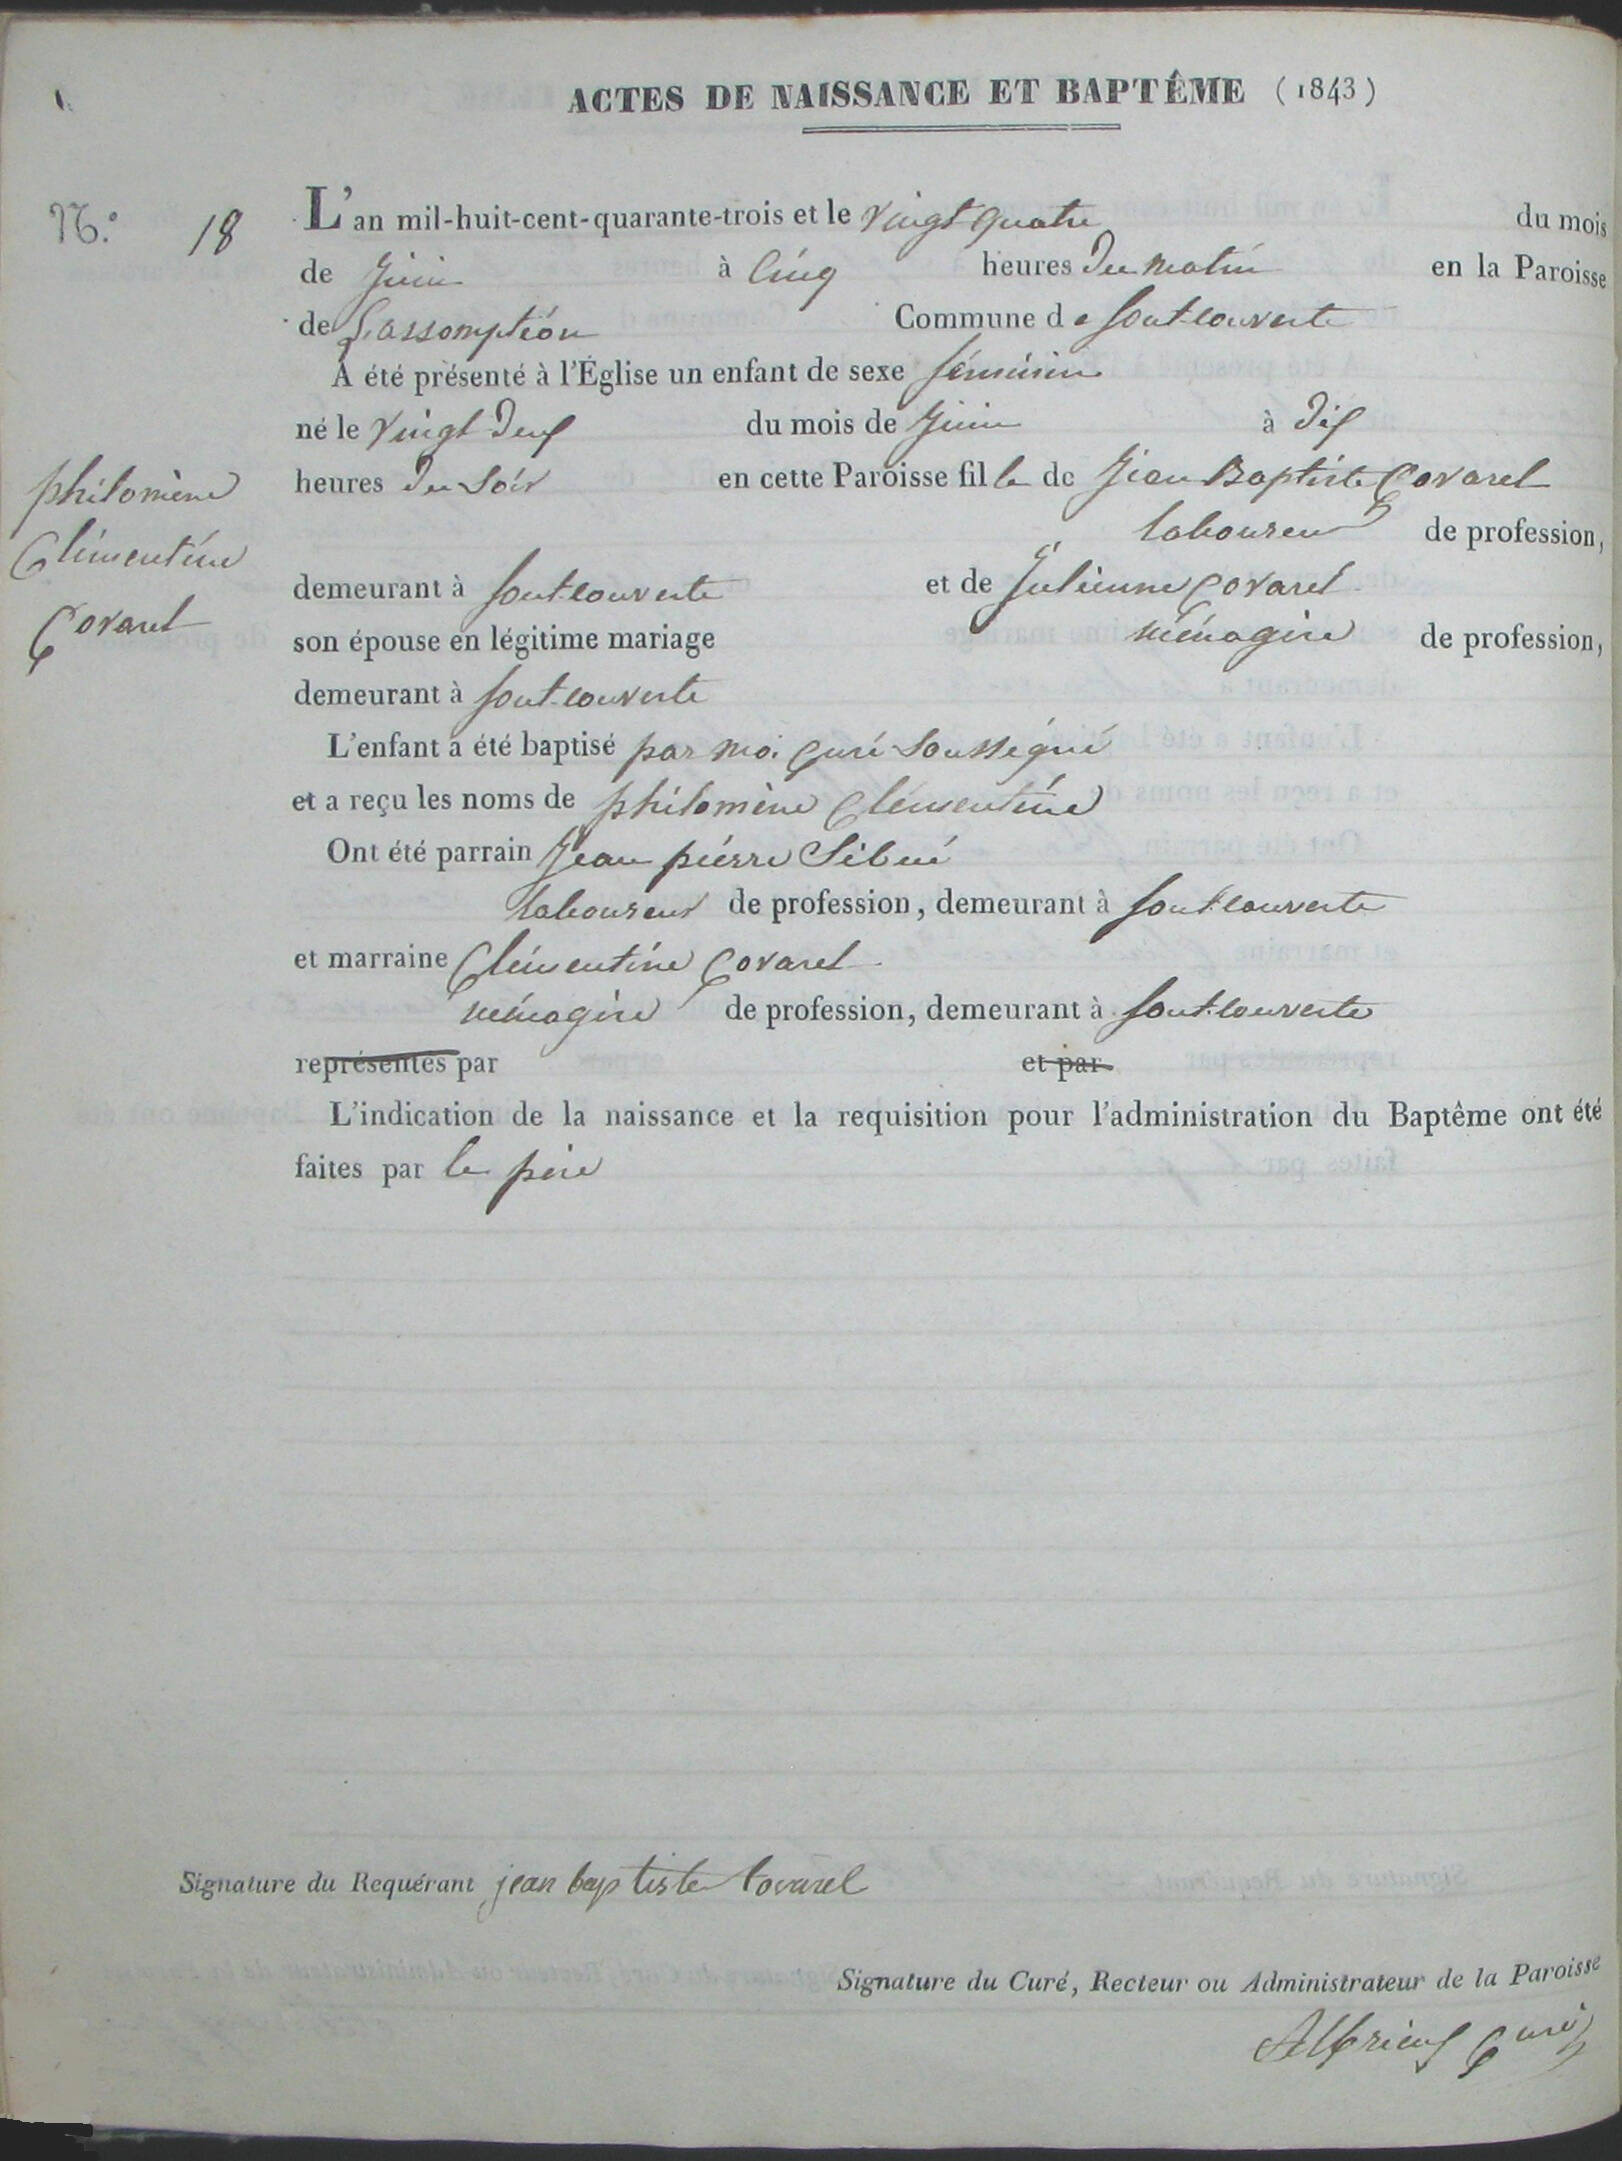 ACTES DE NAISSANCE ET BAPTÊME (1843)
N.º 18
L'an mil-huit-cent-quarante-trois et le vingt quatre du mois
de juin à cinq heures du matin en la Paroisse
de L'assomption Commune de fontcouverte
A été présenté à l'Église un enfant de sexe féminin
né le vingt deux du mois de juin à dix
heures du soir en cette Paroisse fille de Jean Baptiste Covarel
laboureur de profession,
demeurant à fontcouverte et de Julienne Covarel
son épouse en légitime mariage ménagère de profession,
demeurant à fontcouverte
L'enfant a été baptisé par moi curé soussigné
et a reçu les noms de philomène Clémentine
Ont été parrain Jean pierre Sibué
laboureur de profession, demeurant à fontcouverte
et marraine Clémentine Covarel
ménagère de profession, demeurant à fontcouverte
représentés par et par
L'indication de la naissance et la requisition pour l'administration du Baptême ont été
faites par le père
philomène
Clémentine
Covarel
Signature du Requérant jean baptiste Covarel
Signature du Curé, Recteur ou Administrateur de la Paroisse
curé